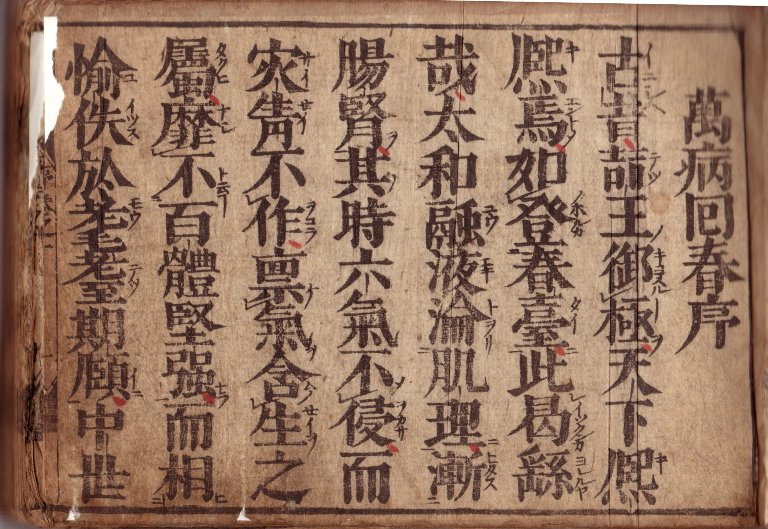 萬病回春序
古昔喆王御極天下熈
熈焉如登春臺此曷繇
哉太和融液淪肌理漸
腸腎其時六氣不侵而
灾眚不作禀氣含生之
屬靡不百體堅強而相
愉佚於耄耋期頤中世